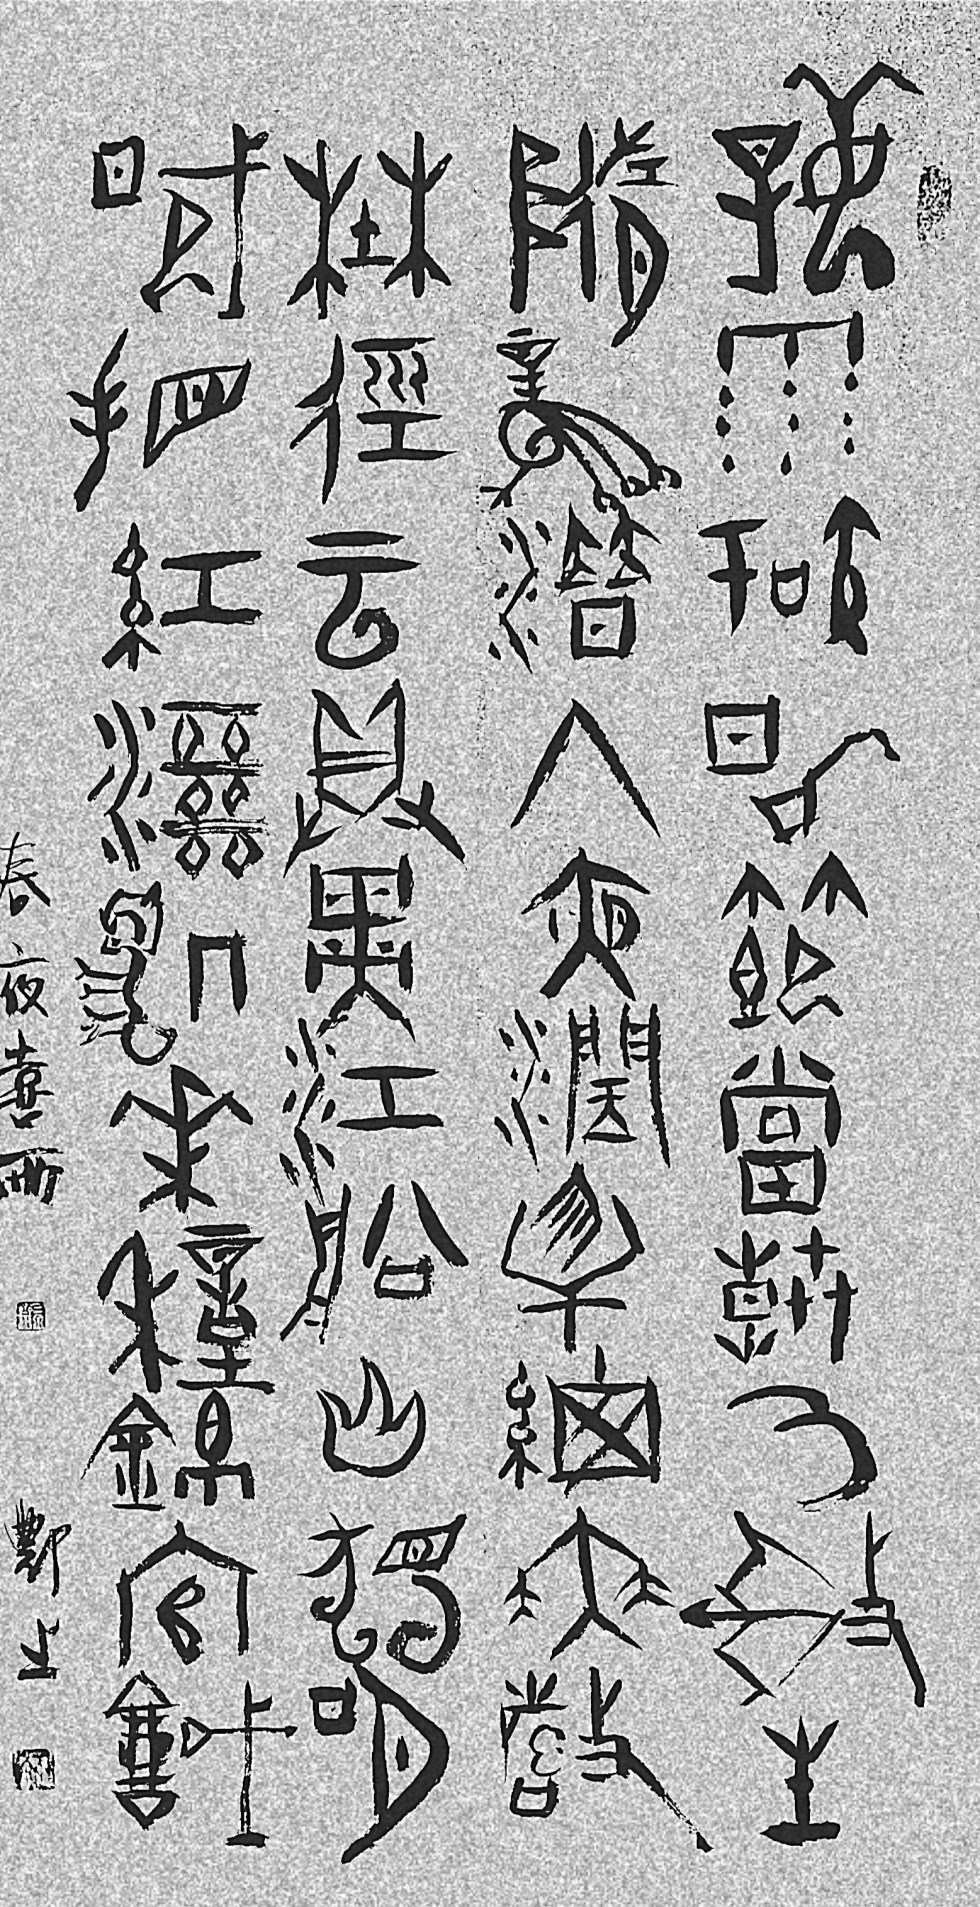 好雨知時節當春乃發生
隨風潛入夜潤物細無聲
埜徑云俱黑江船火獨明
曉看紅濕處花重錦官城
春夜喜雨